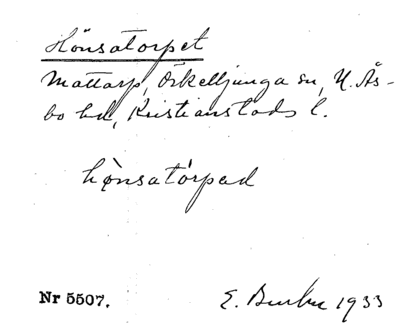 Hönsatorpet
Mattarp, Örkelljunga sn, N. Ås-
bo hd, Kristianstads l.
hø̀nsatórpad
Nr 5507.
E. 1933